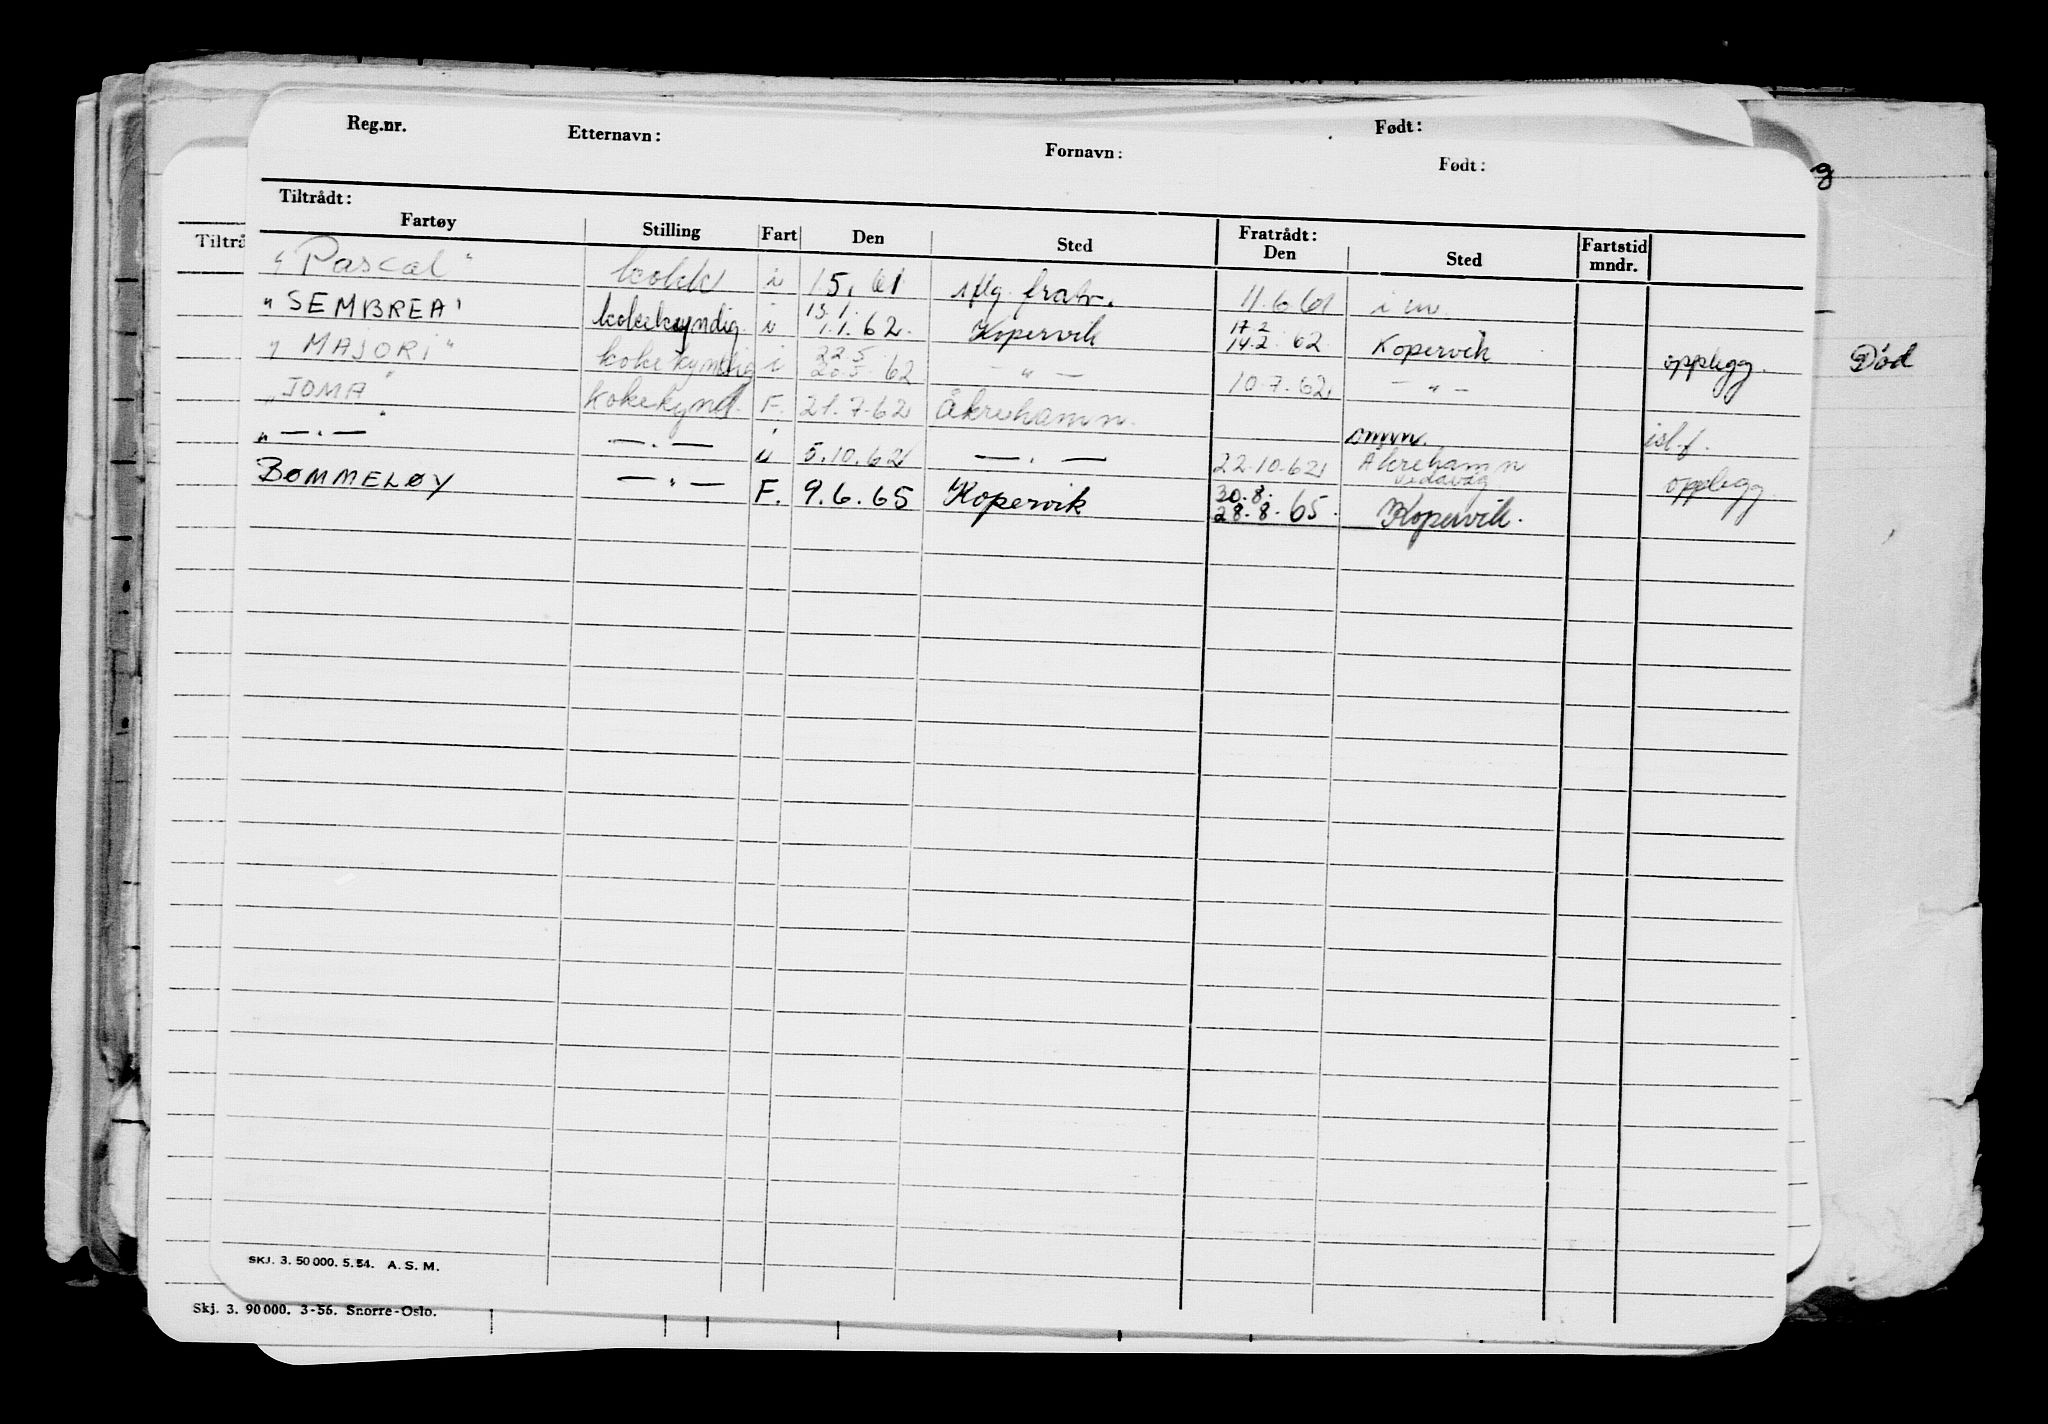 Reg.nr. Etternavn: Fornavn: Født:
Født:
Tiltrådt: Fratrådt:
Fartøy Stilling Fart Den Sted Den Sted Fartstid mndr.
"Pascal" kokk 15. 61 iflg. fratr. 11.6.61
"SEMBREA" kokekyndig. 13.1. 1.1.62. Kopervik 17.2 14.2.62 Kopervik opplegg.
"MAJORI" kokekyndig 22.5 20.5.62 — " — 10.7.62 — " —
"JOMA" kokekynd. F. 21.7.62 Åkrehamn. omm. isl.f.
" — . — — . — 5.10.62 — . — 22.10.62 Åkrehamn Vedavåg opplegg
BØMMELØY — " — F. 9.6.65 Kopervik 30.8. 28.8.65. Kopervik.
Død
SKJ. 3. 50 000. 5. 54. A. S. M.
Skj. 3. 90 000. 3-56. Snorre-Oslo.